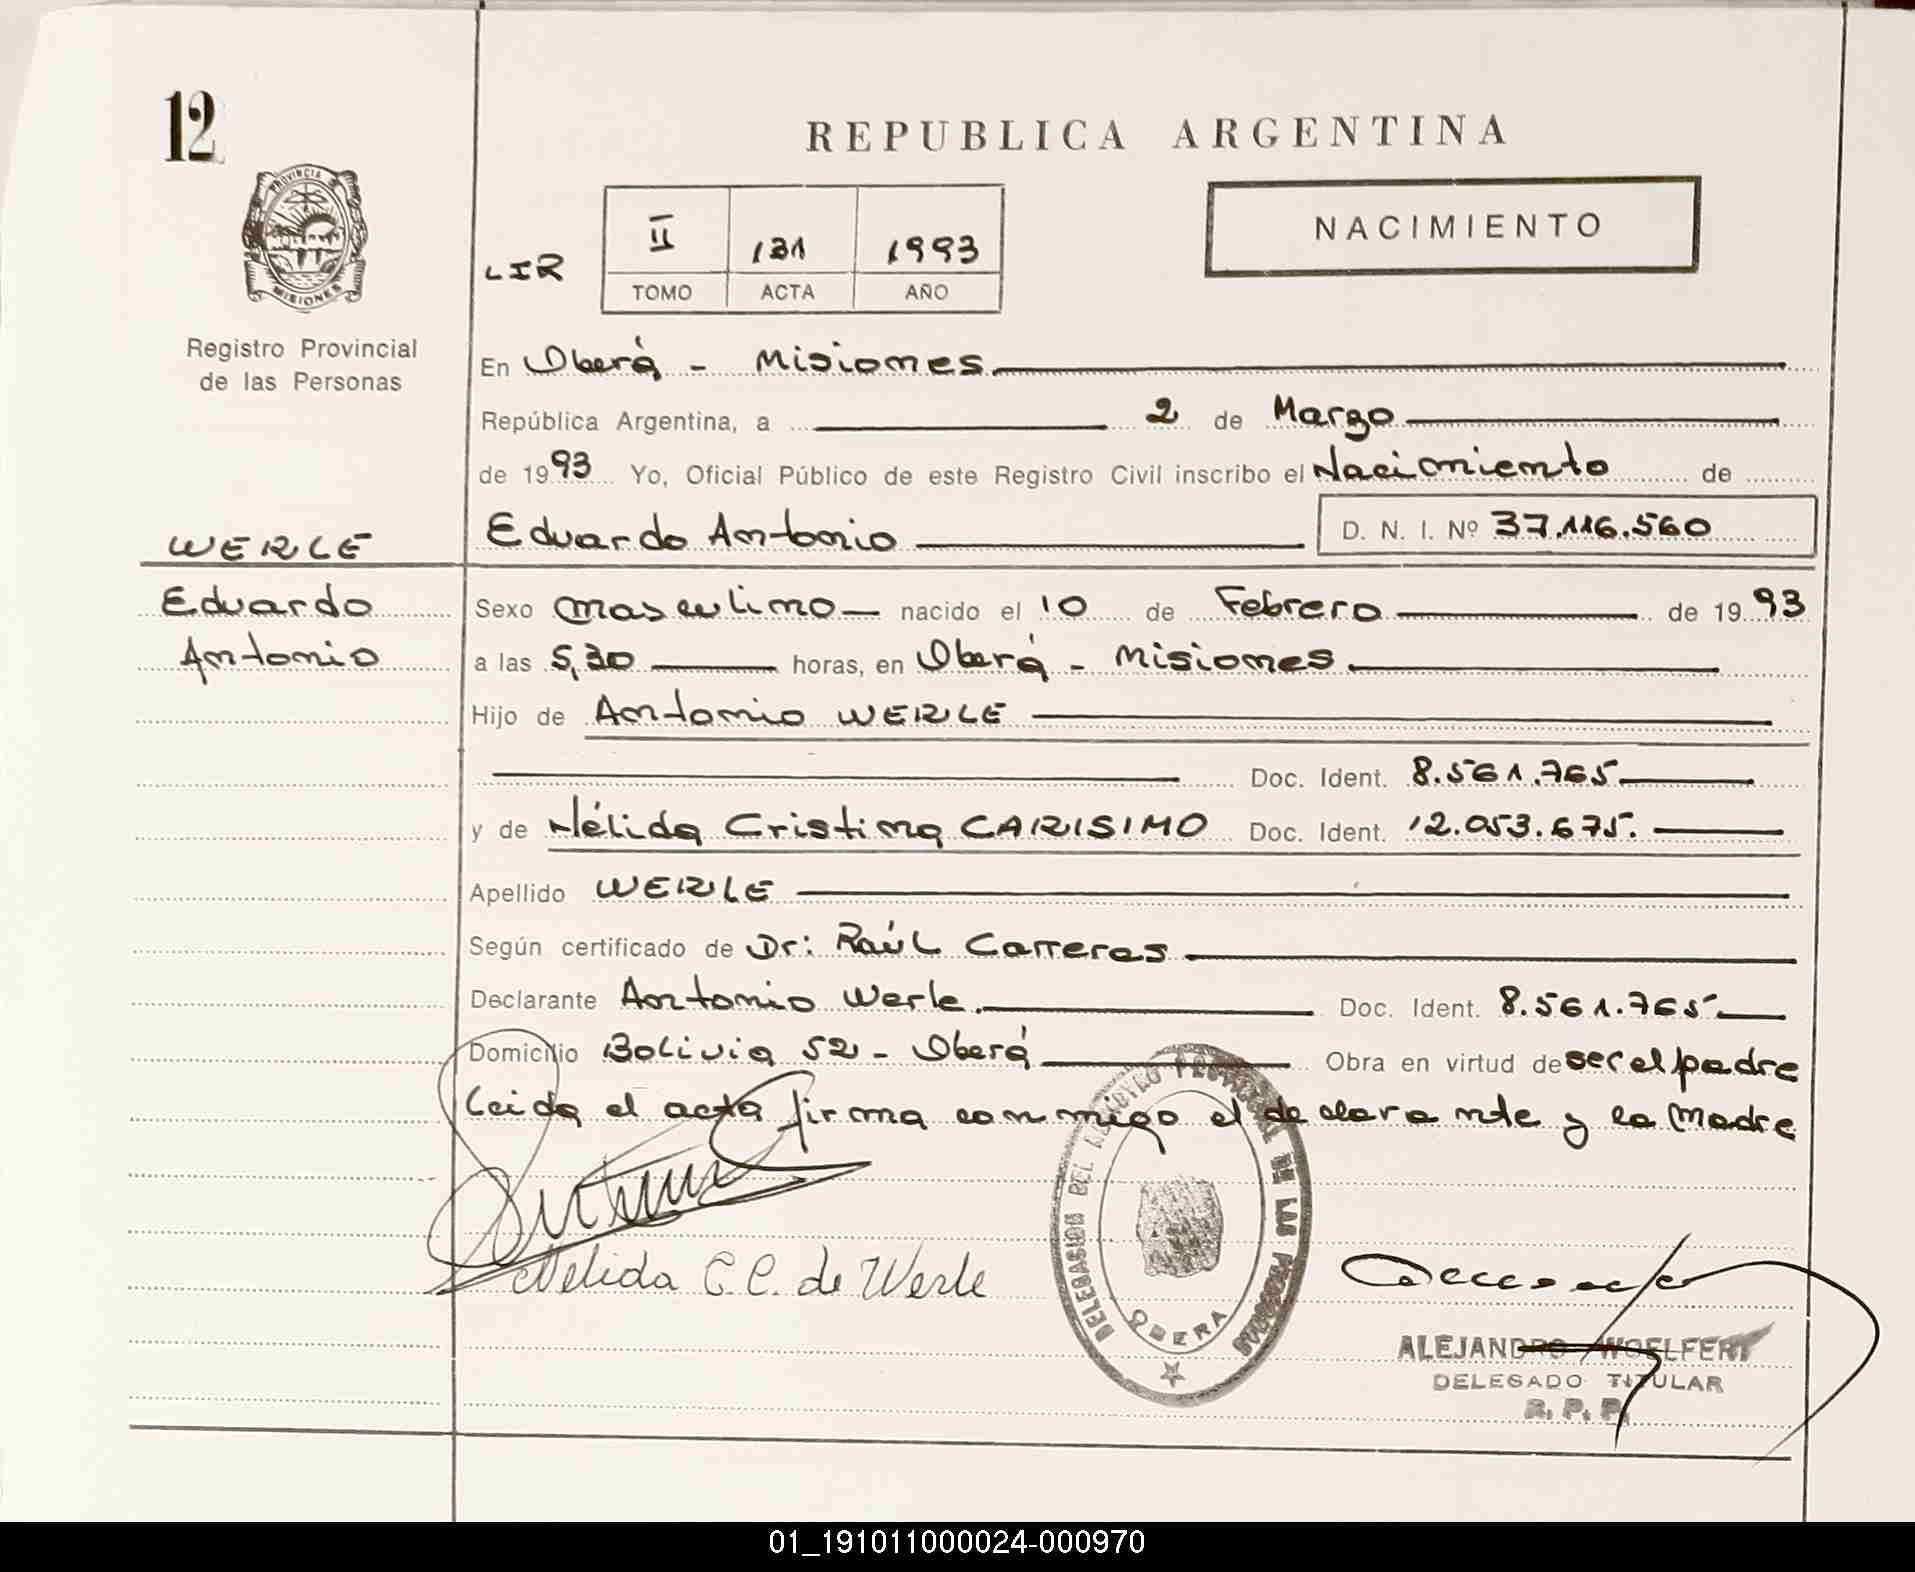 12
REPUBLICA ARGENTINA
PROVINCIA
MISIONES
NACIMIENTO
LIR
II 131 1993
TOMO ACTA AÑO
Registro Provincial
de las Personas
En Oberá - Misiones
República Argentina, a 2 de Marzo
de 1993 Yo, Oficial Público de este Registro Civil inscribo el Nacimiento de
Eduardo Antonio D. N. I. Nº 37.116.560
WERLE
Eduardo
Antonio
Sexo masculino nacido el 10 de Febrero de 1993
a las 5,30 horas, en Oberá - Misiones
Hijo de Antonio WERLE
Doc. Ident. 8.561.765
y de Nélida Cristina CARISIMO Doc. Ident. 12.053.675.
Apellido WERLE
Según certificado de Dr: Raúl Carreras
Declarante Antonio Werle. Doc. Ident. 8.561.765
Domicilio Bolivia 52 - Oberá Obra en virtud de ser el padre
Leida el acta firma conmigo el declarante y la Madre
Nelida C.C. de Werle
DELEGACION DEL REGISTRO PROVINCIAL DE LAS PERSONAS
OBERA
ALEJANDRO WOELFERT
DELEGADO TITULAR
R. P. P.
01_191011000024-000970